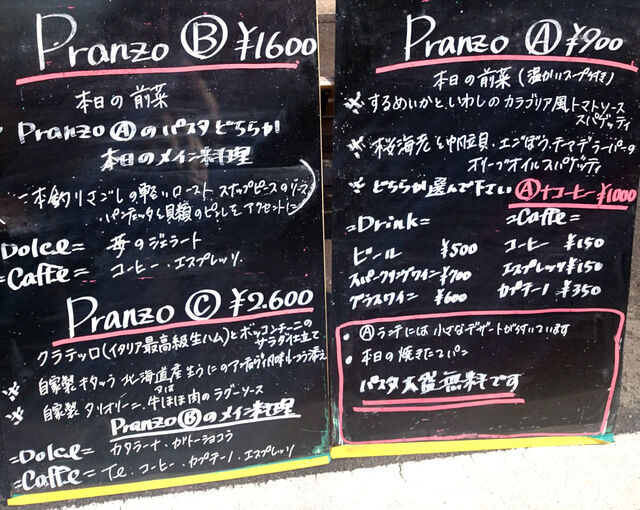 Pranzo Ⓑ ¥1600
本日の前菜
Pranzo Ⓐ のパスタどちらか
本日のメイン料理
一本釣りさごしの軽いロースト スナップピースのソース
パンチェッタと貝類のピゼルをアクセントに
=Dolce= 苺のジェラート
=Caffe= コーヒー・エスプレッソ
Pranzo Ⓒ ¥2.600
クラテッロ(イタリア最高級生ハム)とボッコンチーニの
サラダ仕立て
※ 自家製キタッラ 北海道産生うにの
又は
※ 自家製タリオリーニ、牛ほほ肉のラグーソース
Pranzo Ⓑ のメイン料理
=Dolce= カタラーナ・ガトーショコラ
=Caffe= Te、コーヒー・カプチーノ・エスプレッソ
Pranzo Ⓐ ¥900
本日の前菜 (温かいスープ付き)
※ するめいかといわしのカラブリア風トマトソース
スパゲッティ
※ 桜海老と帆立貝、エゴぼう、チーマデラーパーの
オリーブオイルスパゲッティ
※ どちらか選んで下さい Ⓐ+コーヒー ¥1000
=Drink=
ビール ¥500
スパークリングワイン ¥700
グラスワイン ¥600
=Caffe=
コーヒー ¥150
エスプレッソ ¥150
カプチーノ ¥350
• Ⓐランチには小さなデザートが付いています
• 本日の焼きたてパン
パスタ大盛無料です